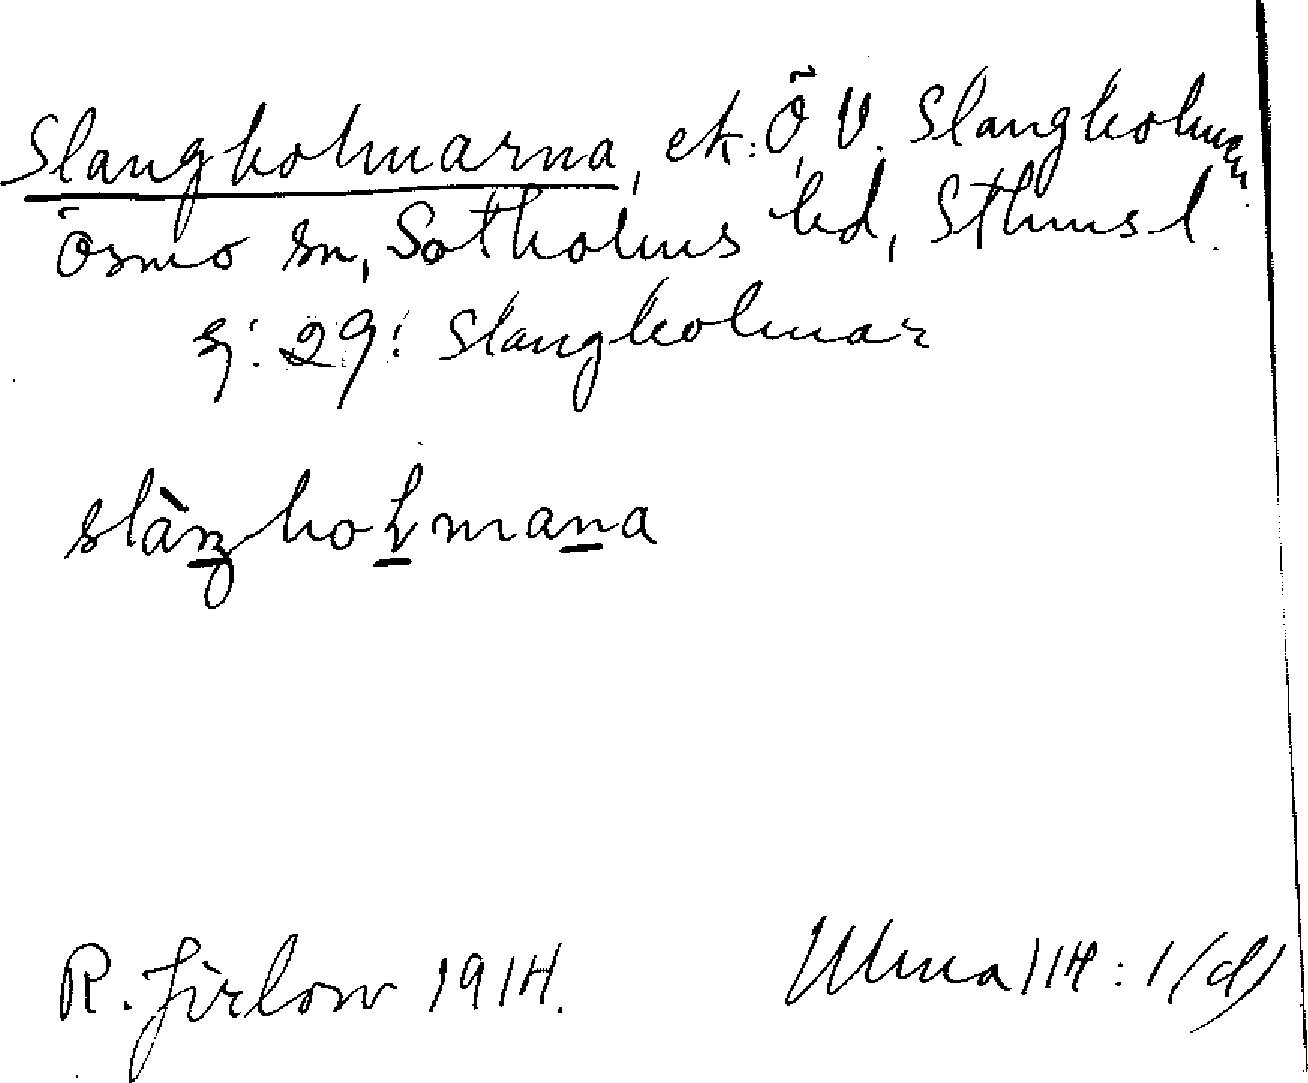 Slangholmarna, ek. Ö, V. Slangholmen
Ösmo sn, Sotholms hd, Sthms l.
gj: 29: Slangholmar
slàŋholmana
R. Jirlow 1914.
Ulma 114:1 (d)